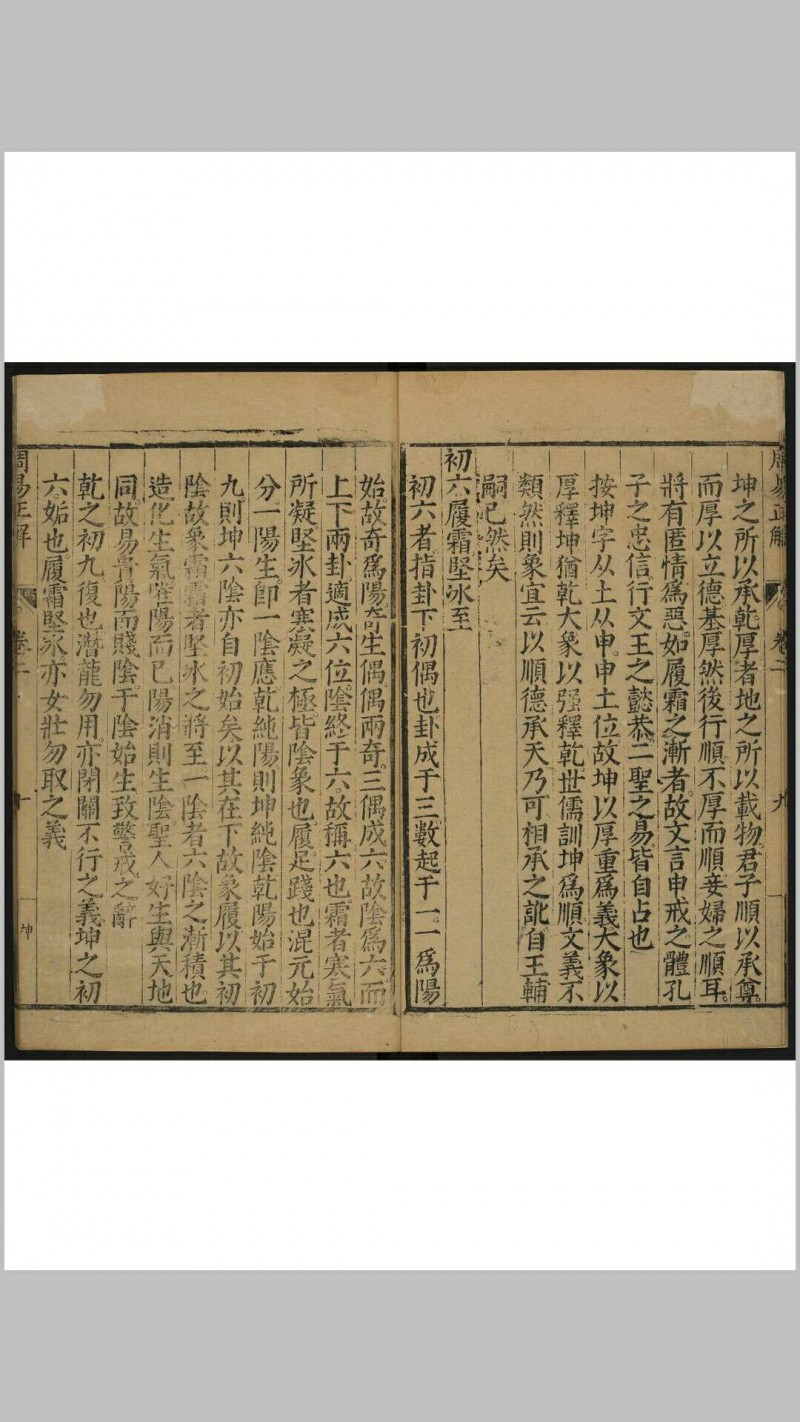 周易正解 卷二 九
坤之所以承乾厚者地之所以載物君子順以承尊
而厚以立德基厚然後行順不厚而順妾婦之順耳
將有匿情爲惡如履霜之漸者故文言申戒之體孔
子之忠信行文王之懿恭二聖之易皆自占也
按坤字从土从申申土位故坤以厚重爲義大象以
厚釋坤猶乾大象以强釋乾世儒訓坤爲順文義不
類然則象宜云以順德承天乃可相承之訛自王輔
嗣已然矣
初六履霜堅冰至
初六者指卦下初偶也卦成于三數起于一一爲陽
始故奇爲陽奇生偶偶兩奇三偶成六故陰爲六而
上下兩卦適成六位陰終于六故稱六也霜者寒氣
所凝堅冰者寒凝之極皆陰象也履足踐也混元始
分一陽生卽一陰應乾純陽則坤純陰乾陽始于初
九則坤六陰亦自初始矣以其在下故象履以其初
陰故象霜霜者堅冰之將至一陰者六陰之漸積也
造化生氣唯陽而已陽消則生陰聖人好生與天地
同故易貴陽而賤陰于陰始生致警戒之辭
乾之初九復也潛龍勿用亦閉關不行之義坤之初
六姤也履霜堅冰亦女壯勿取之義
周易正解 卷二 十 坤